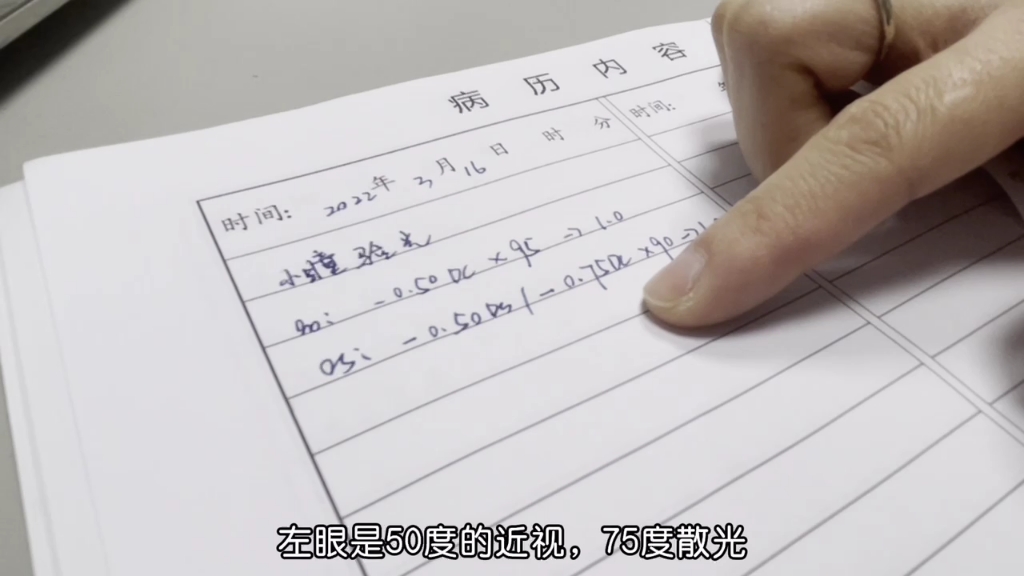 病历内容
时间: 2022年3月16日 时 分
时间:
小瞳验光
OD: -0.50DC×95→1.0
OS: -0.50DS/-0.75DC×90→1.
左眼是50度的近视，75度散光